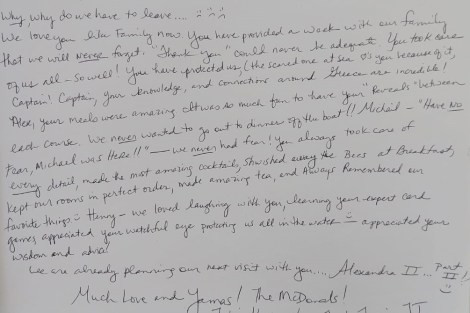 Why, why do we have to leave....
We love you like Family now. You have provided a week with our family
that we will never forget. "Thank you" could never be adequate. You took care
of us all - so well! You have protected us, (the scared one at sea is you because of it,
Captain! Captain, your knowledge, and connections around Greece are incredible!
Alex, your meals were amazing. It was so much fun to have your "Reveals" between
each course. We never wanted to go out to dinner off the boat!! Michail - "Have No
Fear, Michael was Here!!" - we never had fear! You always took care of
every detail, made the most amazing cocktail, Shwished away the Bees at Breakfast,
kept our rooms in perfect order, made amazing tea, and Always Remembered our
favorite things - we loved laughing with you, learning your expert card
games, appreciated your watchful eye protecting us all in the water - appreciated your
wisdom and advice!
We are already planning our next visit with you.... Alexandra II... Part
II!
Much Love and Yamas! The McDonalds!